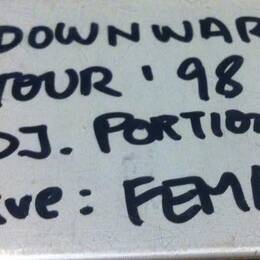 DOWNWAR
TOUR '98
DJ. PORTIO
ive: FEM